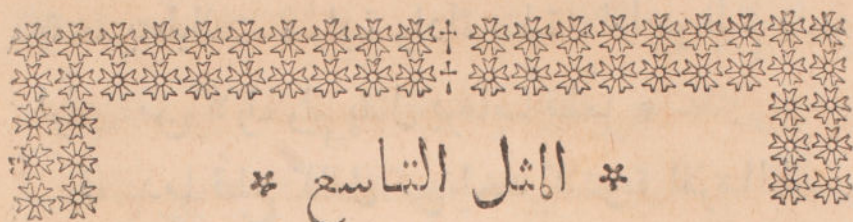 * المثل التاسع *